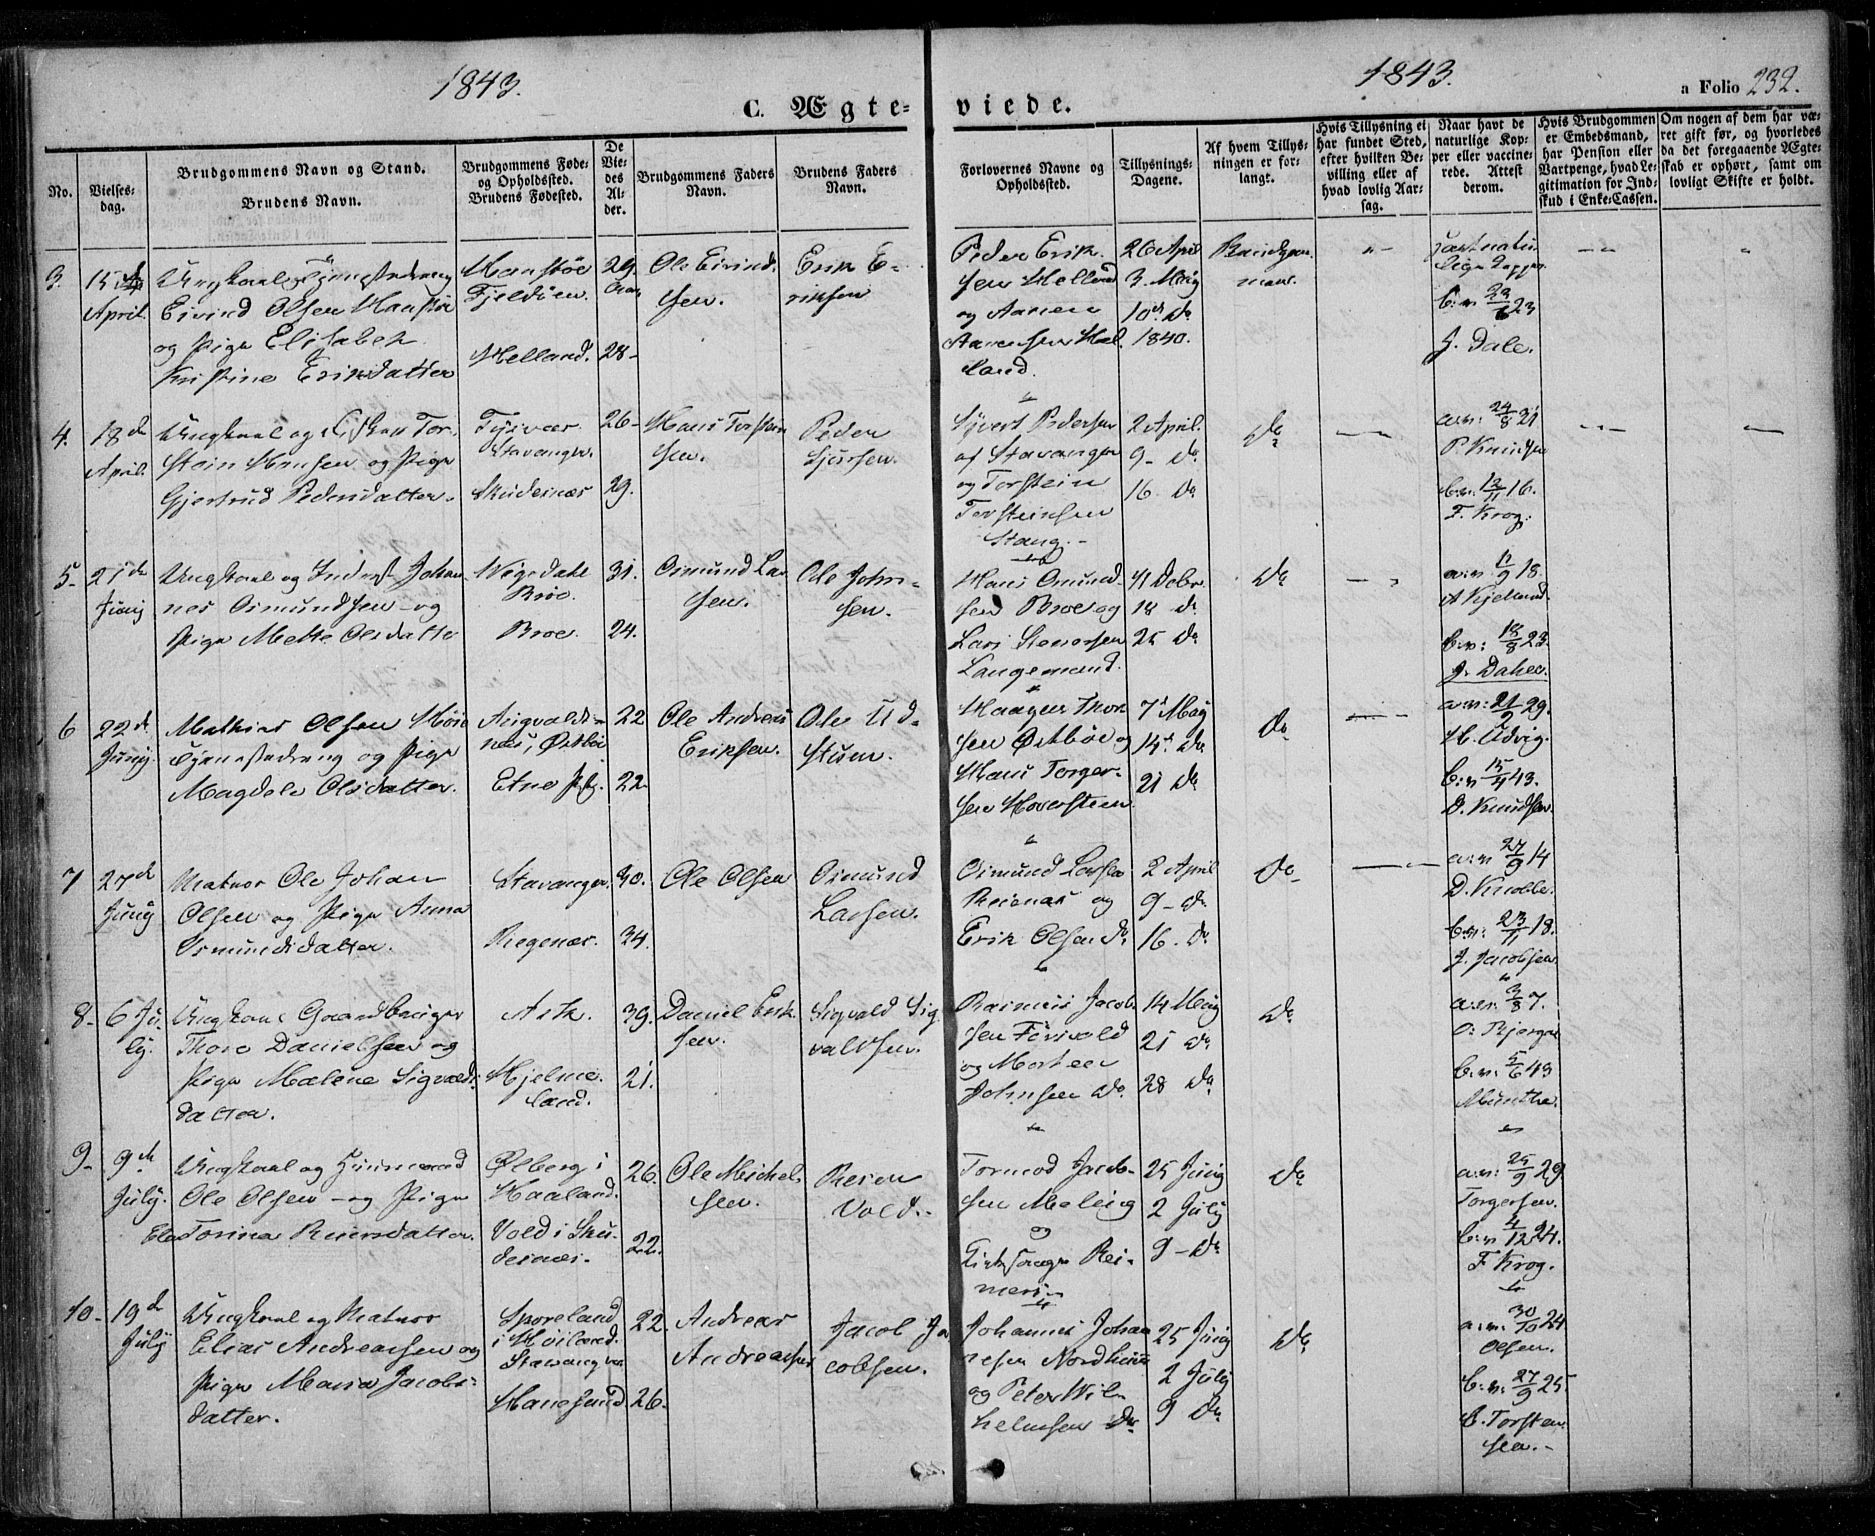 1843.
1843.
C. Ægte-
viede.
a Folio 232.
No.
Vielses-
dag.
Brudgommens Navn og Stand.
Brudens Navn.
Brudgommens Føde-
og Opholdssted.
Brudens Fødested.
De
Vie-
des
Al-
der.
Brudgommens Faders
Navn.
Brudens Faders
Navn.
Forlovernes Navne og
Opholdssted.
Tillysnings-
Dagene.
Af hvem Tillys-
ningen er for-
langt.
Hvis Tillysning ei
har fundet Sted,
efter hvilken Be-
villing eller af
hvad lovlig Aar-
sag.
Naar havt de
naturlige Kop-
per eller vaccine-
rede. Attest
derom.
Hvis Brudgommen
er Embedsmand,
har Pension eller
Vartpenge, hvad Le-
gitimation for Ind-
skud i Enke-Cassen.
Om nogen af dem har væ-
ret gift før, og hvorledes
da det foregaaende Ægte-
skab er ophørt, samt om
lovligt Skifte er holdt.
3.
15de
April.
Ungkarl Tjenestedreng
Eivind Olsen
og Pige Elisabet
Kristine Eriksdatter
Fjeldøen
Helland.
29
28-
Ole Eivind-
sen.
Erik E-
riksen
Peder Erik-
sen Helland
og Aamen
Aamensen Hel-
land.
26 April
3. Maij
10de Do
1840.
b: v: 23
J. Dale.
4.
18de
April.
Ungkarl og Tor-
stein Hansen og Pige
Gjertrud Pedersdatter.
Tysvær
Stavanger.
Skudesnæs
26-
29.
Hans Torstein-
sen.
Peder
Sjursen.
Syvert Pedersen
af Stavanger
og Torstein
Torsteinsen
Stang.-
2 April.
9- do
16. Do
Do
a: v: 24/8 21
P. Knudsen
b: v: 12/11 16.
F. Krog.
5-
21de
Junij
Ungkarl og Inderst Johan-
nes Osmundsen og
Pige Mette Olsdatter
Wigsdahl
Broe.
Broe.
31.
24.
Osmund Lar-
sen.
Ole John-
sen.
Hans Omund-
sen Broe og
Lars Stenersen
Langemand.
11 Debr
18 do
25 Do
Do
a: v: 11/9 18.
A Kjelland.
b: v: 18/8 23.
J. Dahle.
6
22de
Junij
Mathias Olsen
Tjenestedreng og Pige
Magdele Olsdatter.
Augvalds-
næs, Østbø
Etne Pg.
22
22.
Ole Andreas
Eriksen.
Ole Ud-
Haagen Thor-
sen Østbø og
Hans Torger-
sen
7de Maij
14de Do
21 Do
Do
a: v: 21/2 29.
H. Udvig.
b: v: 15/4 43.
D. Knudsen.
7
27de
Junij
Matros Ole Johan
Olsen og Pige Anna
Osmundsdatter.
Stavanger.
Regenæs.
30.
34.
Ole Olsen
Osmund
Larsen.
Osmund Larsen
Reienæs og
Erik Olsen do.
2 April
9- Do
16. Do
Do
a: v 27/9 14
D. Knolle.
b: v: 23/11 18.
J. Jacobsen
8-
6 Ju-
ly.
Ungkarl Gaardbruger
Thore Danielsen og
Pige Malene Sigvalds-
datter.
Ask.
Hjelme-
land.
39.
21.
Daniel Erik-
sen.
Sigvald Sig-
valdsen.
Rasmus Jacob-
sen
og Morten
Johnsen Do.
14 Maij
21 Do
28 Do
Do
a: v: 3/8 7.
b: v: 5/6 43
Munthe.
9-
9de
July.
Ungkarl og Huusmand
Ole Olsen - og Pige
Torina Reiersdatter.
Ølberg i
Haaland.
Vold i Sku-
desnæs.
26.
22.
Ole Michel-
sen.
Reier
Vold.-
Tormod Jacob-
sen Meling
og
Kirkesanger Rei-
mers
25 Junij
2 Julij
9- Do
Do
a: v: 25/9 29
Torgersen.
b: v 4/12 24.
F Krog.
10-
19de
Julij
Ungkarl og Matros
Elias Andreassen og
Pige Maria Jacobs-
datter.
i Høiland.
Stavanger
Hanesund
22.
26.
Andreas
Andreassen
Jacob Ja-
cobsen.
Johannes Johan-
nesen
og Peter Wil-
helmsen Do
25 Junij
2 Julij
9 Do
Do
a: v: 30/10 24
Olsen.
b: v: 27/9 25
Torsten-
sen.-